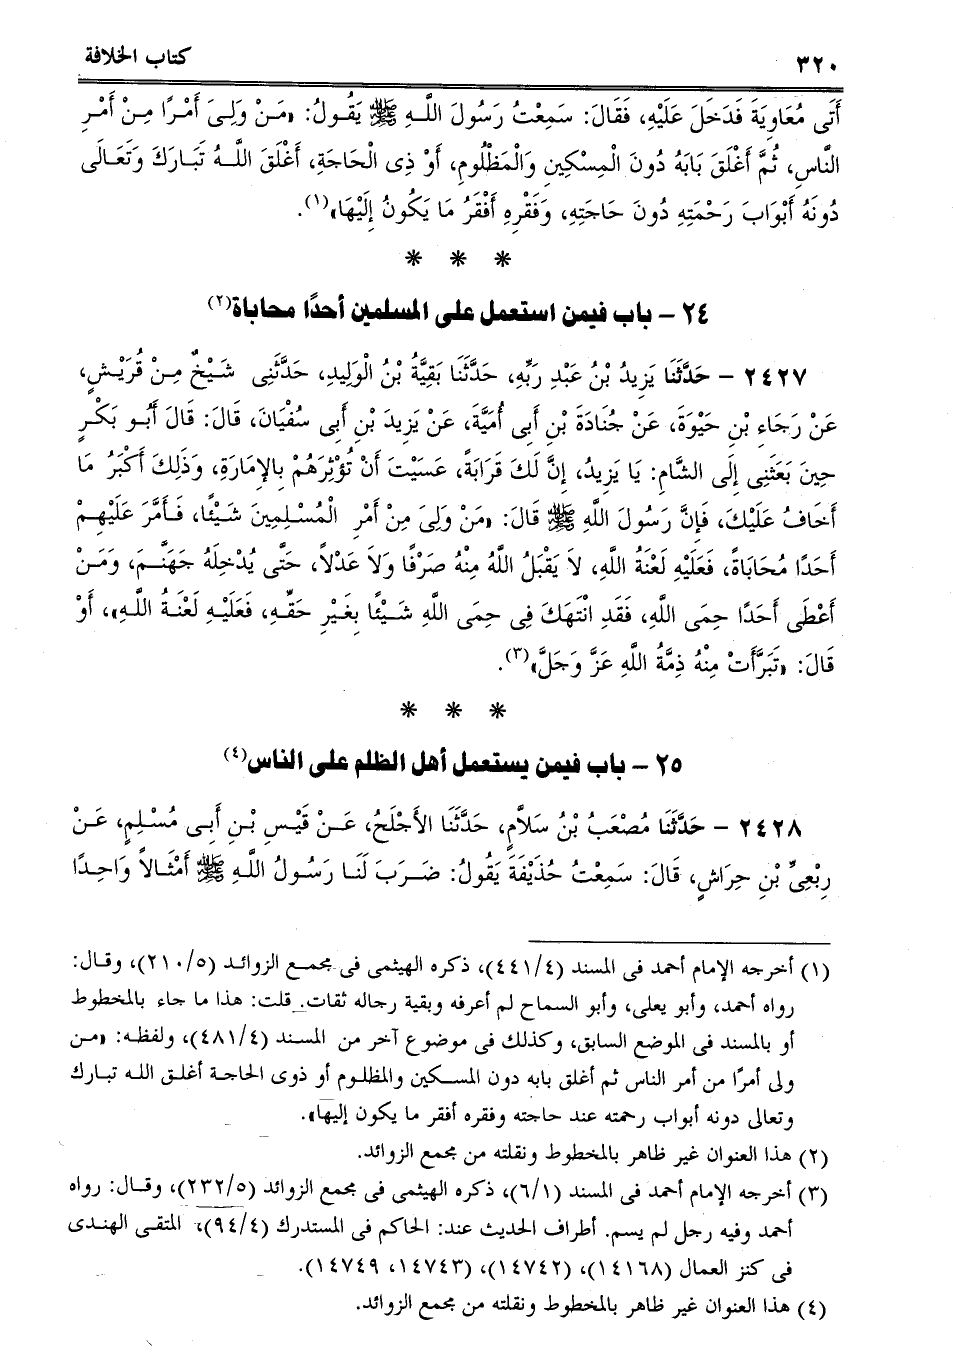 ٣٢٠ كتاب الخلافة
أَتَى مُعَاوِيَةَ فَدَخَلَ عَلَيْهِ، فَقَالَ: سَمِعْتُ رَسُولَ اللَّهِ ﷺ يَقُولُ: «مَنْ وَلِىَ أَمْرًا مِنْ أَمْرِ
النَّاسِ، ثُمَّ أَغْلَقَ بَابَهُ دُونَ الْمِسْكِينِ وَالْمَظْلُومِ، أَوْ ذِى الْحَاجَةِ، أَغْلَقَ اللَّهُ تَبَارَكَ وَتَعَالَى
دُونَهُ أَبْوَابَ رَحْمَتِهِ دُونَ حَاجَتِهِ، وَفَقْرِهِ أَفْقَرُ مَا يَكُونُ إِلَيْهَا»(١).
* * *
٢٤ - باب فيمن استعمل على المسلمين أحدًا محاباة(٢)
٢٤٢٧ - حَدَّثَنَا يَزِيدُ بْنُ عَبْدِ رَبِّهِ، حَدَّثَنَا بَقِيَّةُ بْنُ الْوَلِيدِ، حَدَّثَنِى شَيْخٌ مِنْ قُرَيْشٍ،
عَنْ رَجَاءِ بْنِ حَيْوَةَ، عَنْ جُنَادَةَ بْنِ أَبِى أُمَيَّةَ، عَنْ يَزِيدَ بْنِ أَبِى سُفْيَانَ، قَالَ: قَالَ أَبُو بَكْرٍ
حِينَ بَعَثَنِى إِلَى الشَّامِ: يَا يَزِيدُ، إِنَّ لَكَ قَرَابَةً، عَسَيْتَ أَنْ تُؤْثِرَهُمْ بِالإِمَارَةِ، وَذَلِكَ أَكْبَرُ مَا
أَخَافُ عَلَيْكَ، فَإِنَّ رَسُولَ اللَّهِ ﷺ قَالَ: «مَنْ وَلِىَ مِنْ أَمْرِ الْمُسْلِمِينَ شَيْئًا، فَأَمَّرَ عَلَيْهِمْ
أَحَدًا مُحَابَاةً، فَعَلَيْهِ لَعْنَةُ اللَّهِ، لاَ يَقْبَلُ اللَّهُ مِنْهُ صَرْفًا وَلاَ عَدْلاً، حَتَّى يُدْخِلَهُ جَهَنَّمَ، وَمَنْ
أَعْطَى أَحَدًا حِمَى اللَّهِ، فَقَدِ انْتَهَكَ فِى حِمَى اللَّهِ شَيْئًا بِغَيْرِ حَقِّهِ، فَعَلَيْهِ لَعْنَةُ اللَّهِ»، أَوْ
قَالَ: «تَبَرَّأَتْ مِنْهُ ذِمَّةُ اللَّهِ عَزَّ وَجَلَّ»(٣).
* * *
٢٥ - باب فيمن يستعمل أهل الظلم على الناس(٤)
٢٤٢٨ - حَدَّثَنَا مُصْعَبُ بْنُ سَلاَّمٍ، حَدَّثَنَا الأَجْلَحُ، عَنْ قَيْسِ بْنِ أَبِى مُسْلِمٍ، عَنْ
رِبْعِىِّ بْنِ حِرَاشٍ، قَالَ: سَمِعْتُ حُذَيْفَةَ يَقُولُ: ضَرَبَ لَنَا رَسُولُ اللَّهِ ﷺ أَمْثَالاً وَاحِدًا
(١) أخرجه الإمام أحمد فى المسند (٤٤١/٤)، ذكره الهيثمى فى مجمع الزوائد (٢١٠/٥)، وقال:
رواه أحمد، وأبو يعلى، وأبو السماح لم أعرفه وبقية رجاله ثقات. قلت: هذا ما جاء بالمخطوط
أو بالمسند فى الموضع السابق، وكذلك فى موضوع آخر من المسند (٤٨١/٤)، ولفظه: «من
ولى أمرًا من أمر الناس ثم أغلق بابه دون المسكين والمظلوم أو ذوى الحاجة أغلق الله تبارك
وتعالى دونه أبواب رحمته عند حاجته وفقره أفقر ما يكون إليها».
(٢) هذا العنوان غير ظاهر بالمخطوط ونقلته من مجمع الزوائد.
(٣) أخرجه الإمام أحمد فى المسند (٦/١)، ذكره الهيثمى فى مجمع الزوائد (٢٣٢/٥)، وقال: رواه
أحمد وفيه رجل لم يسم. أطراف الحديث عند: الحاكم فى المستدرك (٩٤/٤)، المتقى الهندى
فى كنز العمال (١٤١٦٨)، (١٤٧٤٢)، (١٤٧٤٣، ١٤٧٤٩).
(٤) هذا العنوان غير ظاهر بالمخطوط ونقلته من مجمع الزوائد.